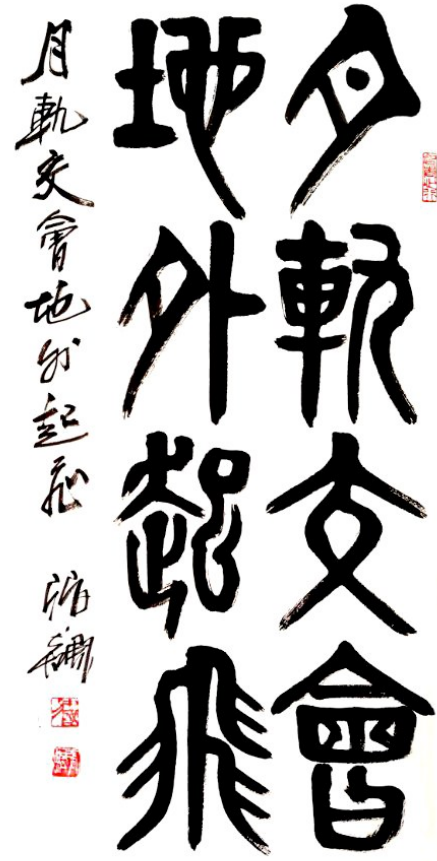 月軌交會
地外起飛
月軌交會地外起飛